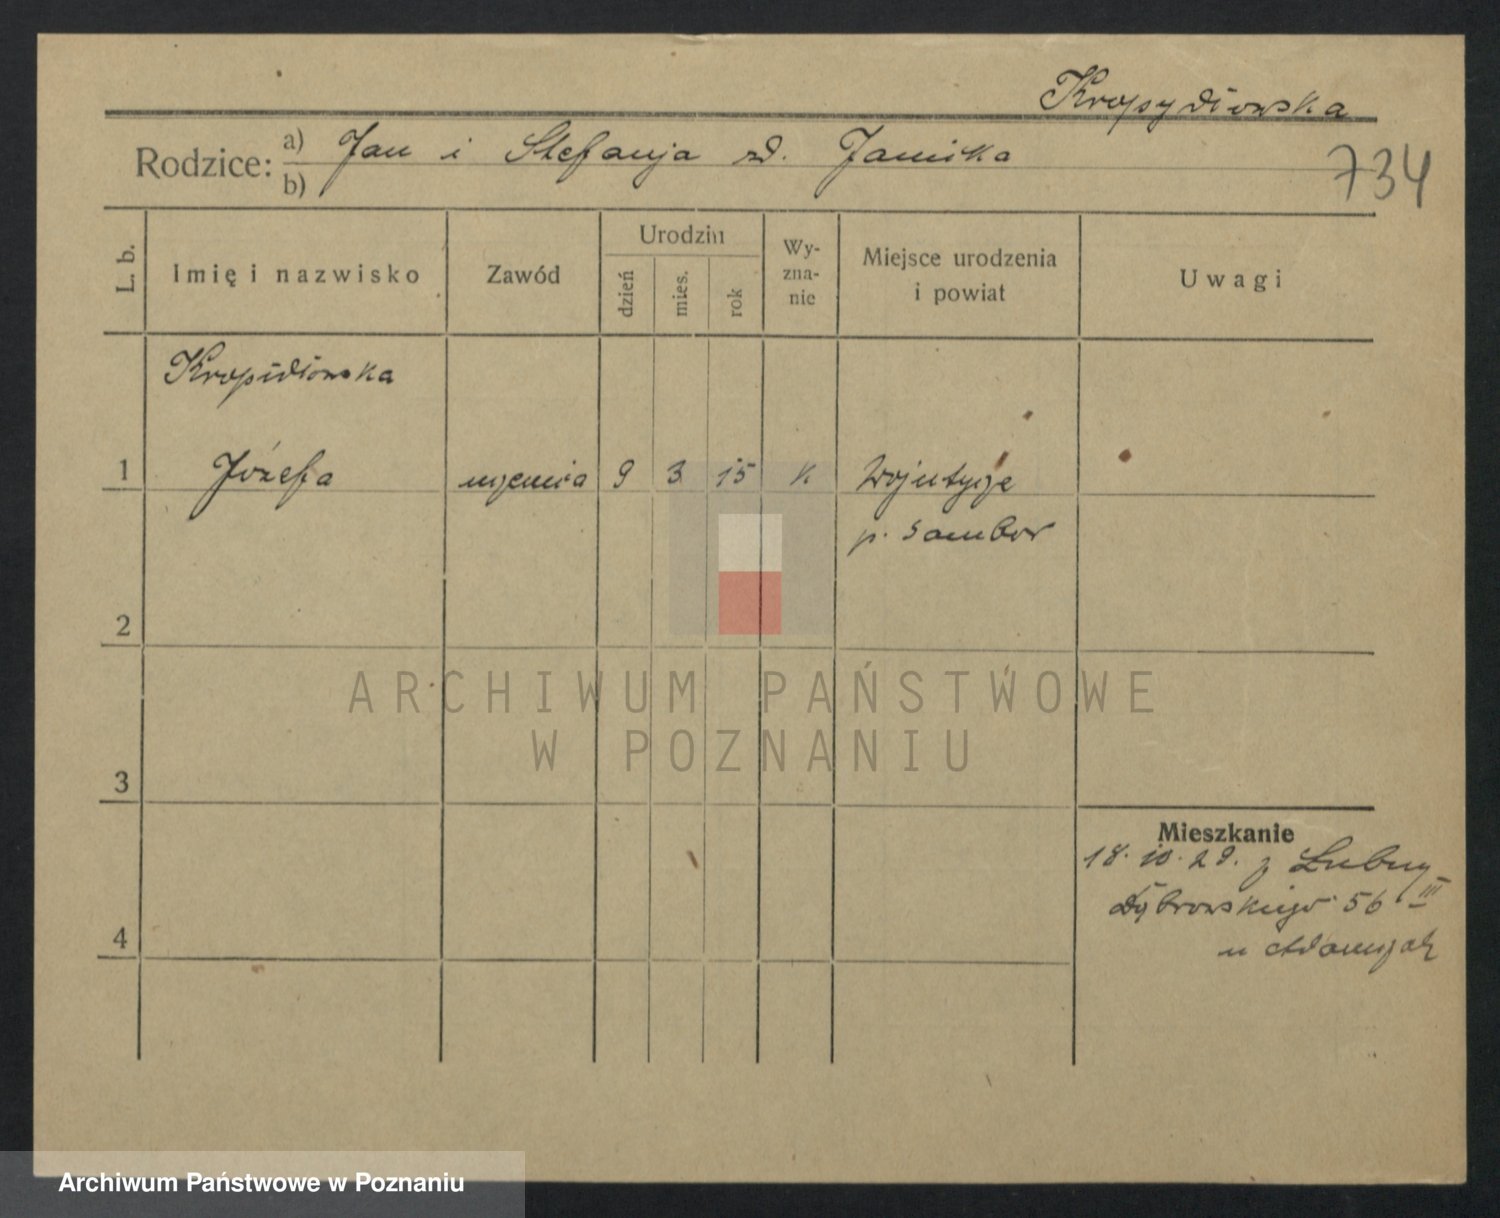 Kropydłowska
Rodzice: a) Jan i Stefanja zd. Jamska
b)
734
L. b.
Imię i nazwisko
Zawód
Urodzin
dzień
mies.
rok
Wy-
zna-
nie
Miejsce urodzenia
i powiat
Uwagi
Kropidłowska
1 Józefa uczenica 9 3 15 k Wojutycze
p. Sambor
2
3
4
Mieszkanie
18.10.29. z Lubny
Dąbrowskiego 56 III
u
ARCHIWUM PAŃSTWOWE
W POZNANIU
Archiwum Państwowe w Poznaniu